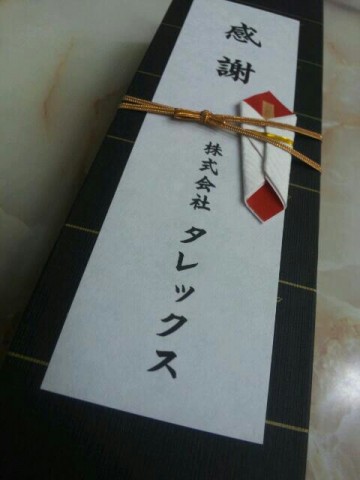 感謝
株式会社 タレックス